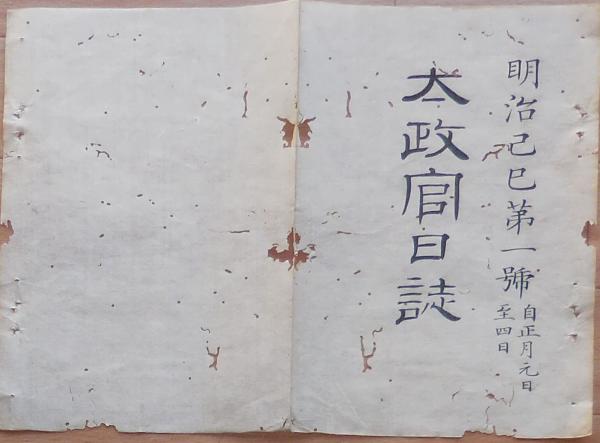 明治己巳第一號
自正月元日
至四日
太政官日誌